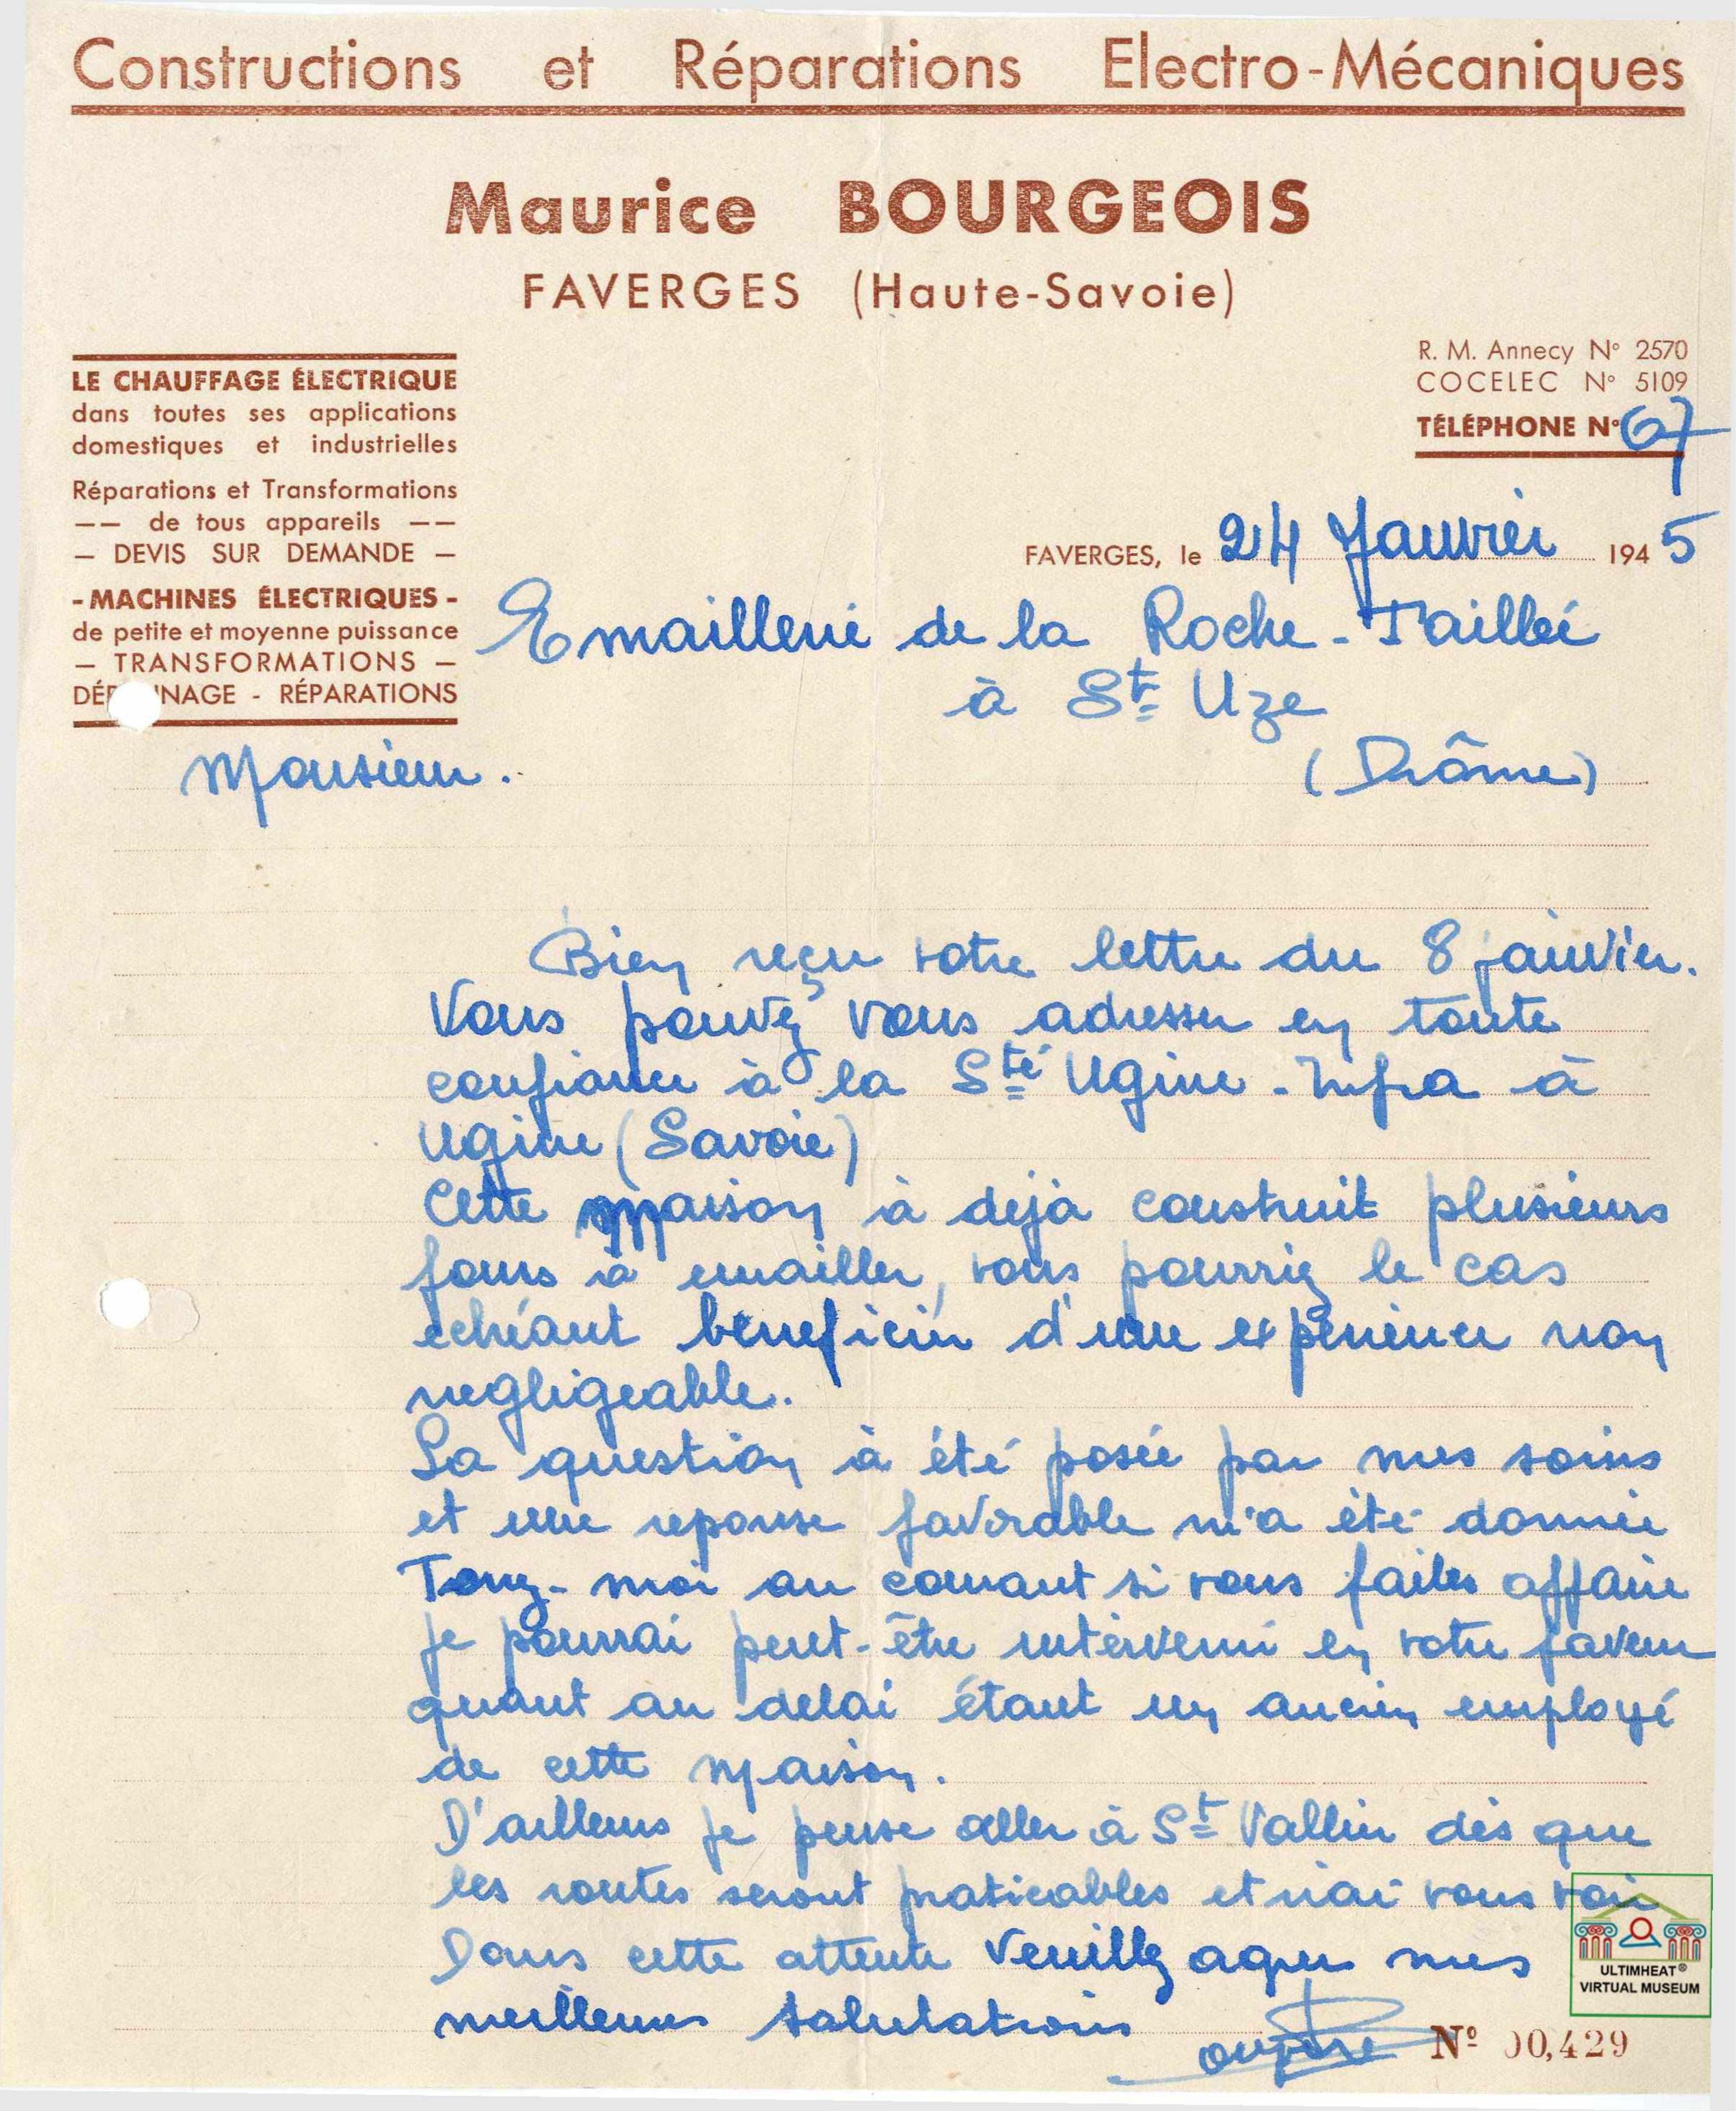 Constructions et Réparations Electro-Mécaniques
Maurice BOURGEOIS
FAVERGES (Haute-Savoie)
R. M. Annecy N° 2570
COCELEC N° 5109
TÉLÉPHONE N° 67
LE CHAUFFAGE ÉLECTRIQUE
dans toutes ses applications
domestiques et industrielles
Réparations et Transformations
-- de tous appareils --
- DEVIS SUR DEMANDE -
- MACHINES ÉLECTRIQUES -
de petite et moyenne puissance
- TRANSFORMATIONS -
DÉP NNAGE - RÉPARATIONS
FAVERGES, le 24 Janvier 1945
Emaillerie de la Roche-Taillée
à St Uze
(Drôme)
Monsieur.
Bien reçu votre lettre du 8 janvier.
Vous pouvez vous adresser en toute
confiance à la Sté Ugine-Infra à
Ugine (Savoie)
Cette maison à dejà construit plusieurs
fours à emailler, vous pourriez le cas
echéant beneficier d'une experience non
negligeable.
La question à été posée par mes soins
et une reponse favorable m'a été donnée
Tenez-moi au courant si vous faites affaire
je pourrai peut-être intervenir en votre faveur
quant au delai étant un ancien employé
de cette maison.
D'ailleurs je pense aller à St Vallier dès que
les routes seront praticables et irai vous voir
Dans cette attente Veuillez agreer mes
meilleures salutations
ULTIMHEAT®
VIRTUAL MUSEUM
N° 00,429